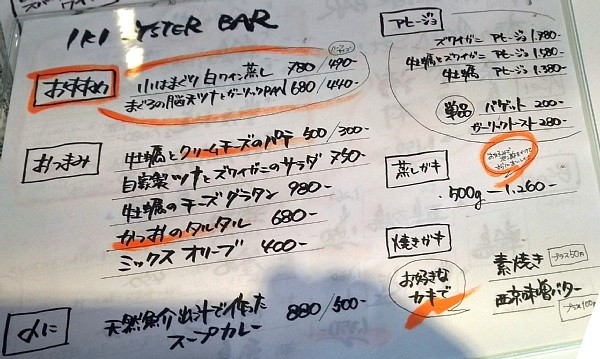 IKI OYSTER BAR
おすすめ
小はまぐり 白ワイン蒸し 780/490-
まぐろの脳天ツナとガーリックPAN 680/440-
おつまみ
牡蠣とクリームチーズのパテ 500/300-
自家製ツナとズワイガニのサラダ 750-
牡蠣のチーズグラタン 980-
かつおのタルタル 680-
ミックスオリーブ 400-
〆に
天然魚介出汁で作った
スープカレー 880/500-
アヒージョ
ズワイガニ アヒージョ 1.780-
牡蠣とズワイガニ アヒージョ 1.580-
牡蠣 アヒージョ 1.380-
単品
バゲット 200-
ガーリックトースト 280-
蒸しガキ
500g - 1.260-
焼きガキ
お好きな
カキで
素焼き プラス50円
西京味噌バター プラス100円